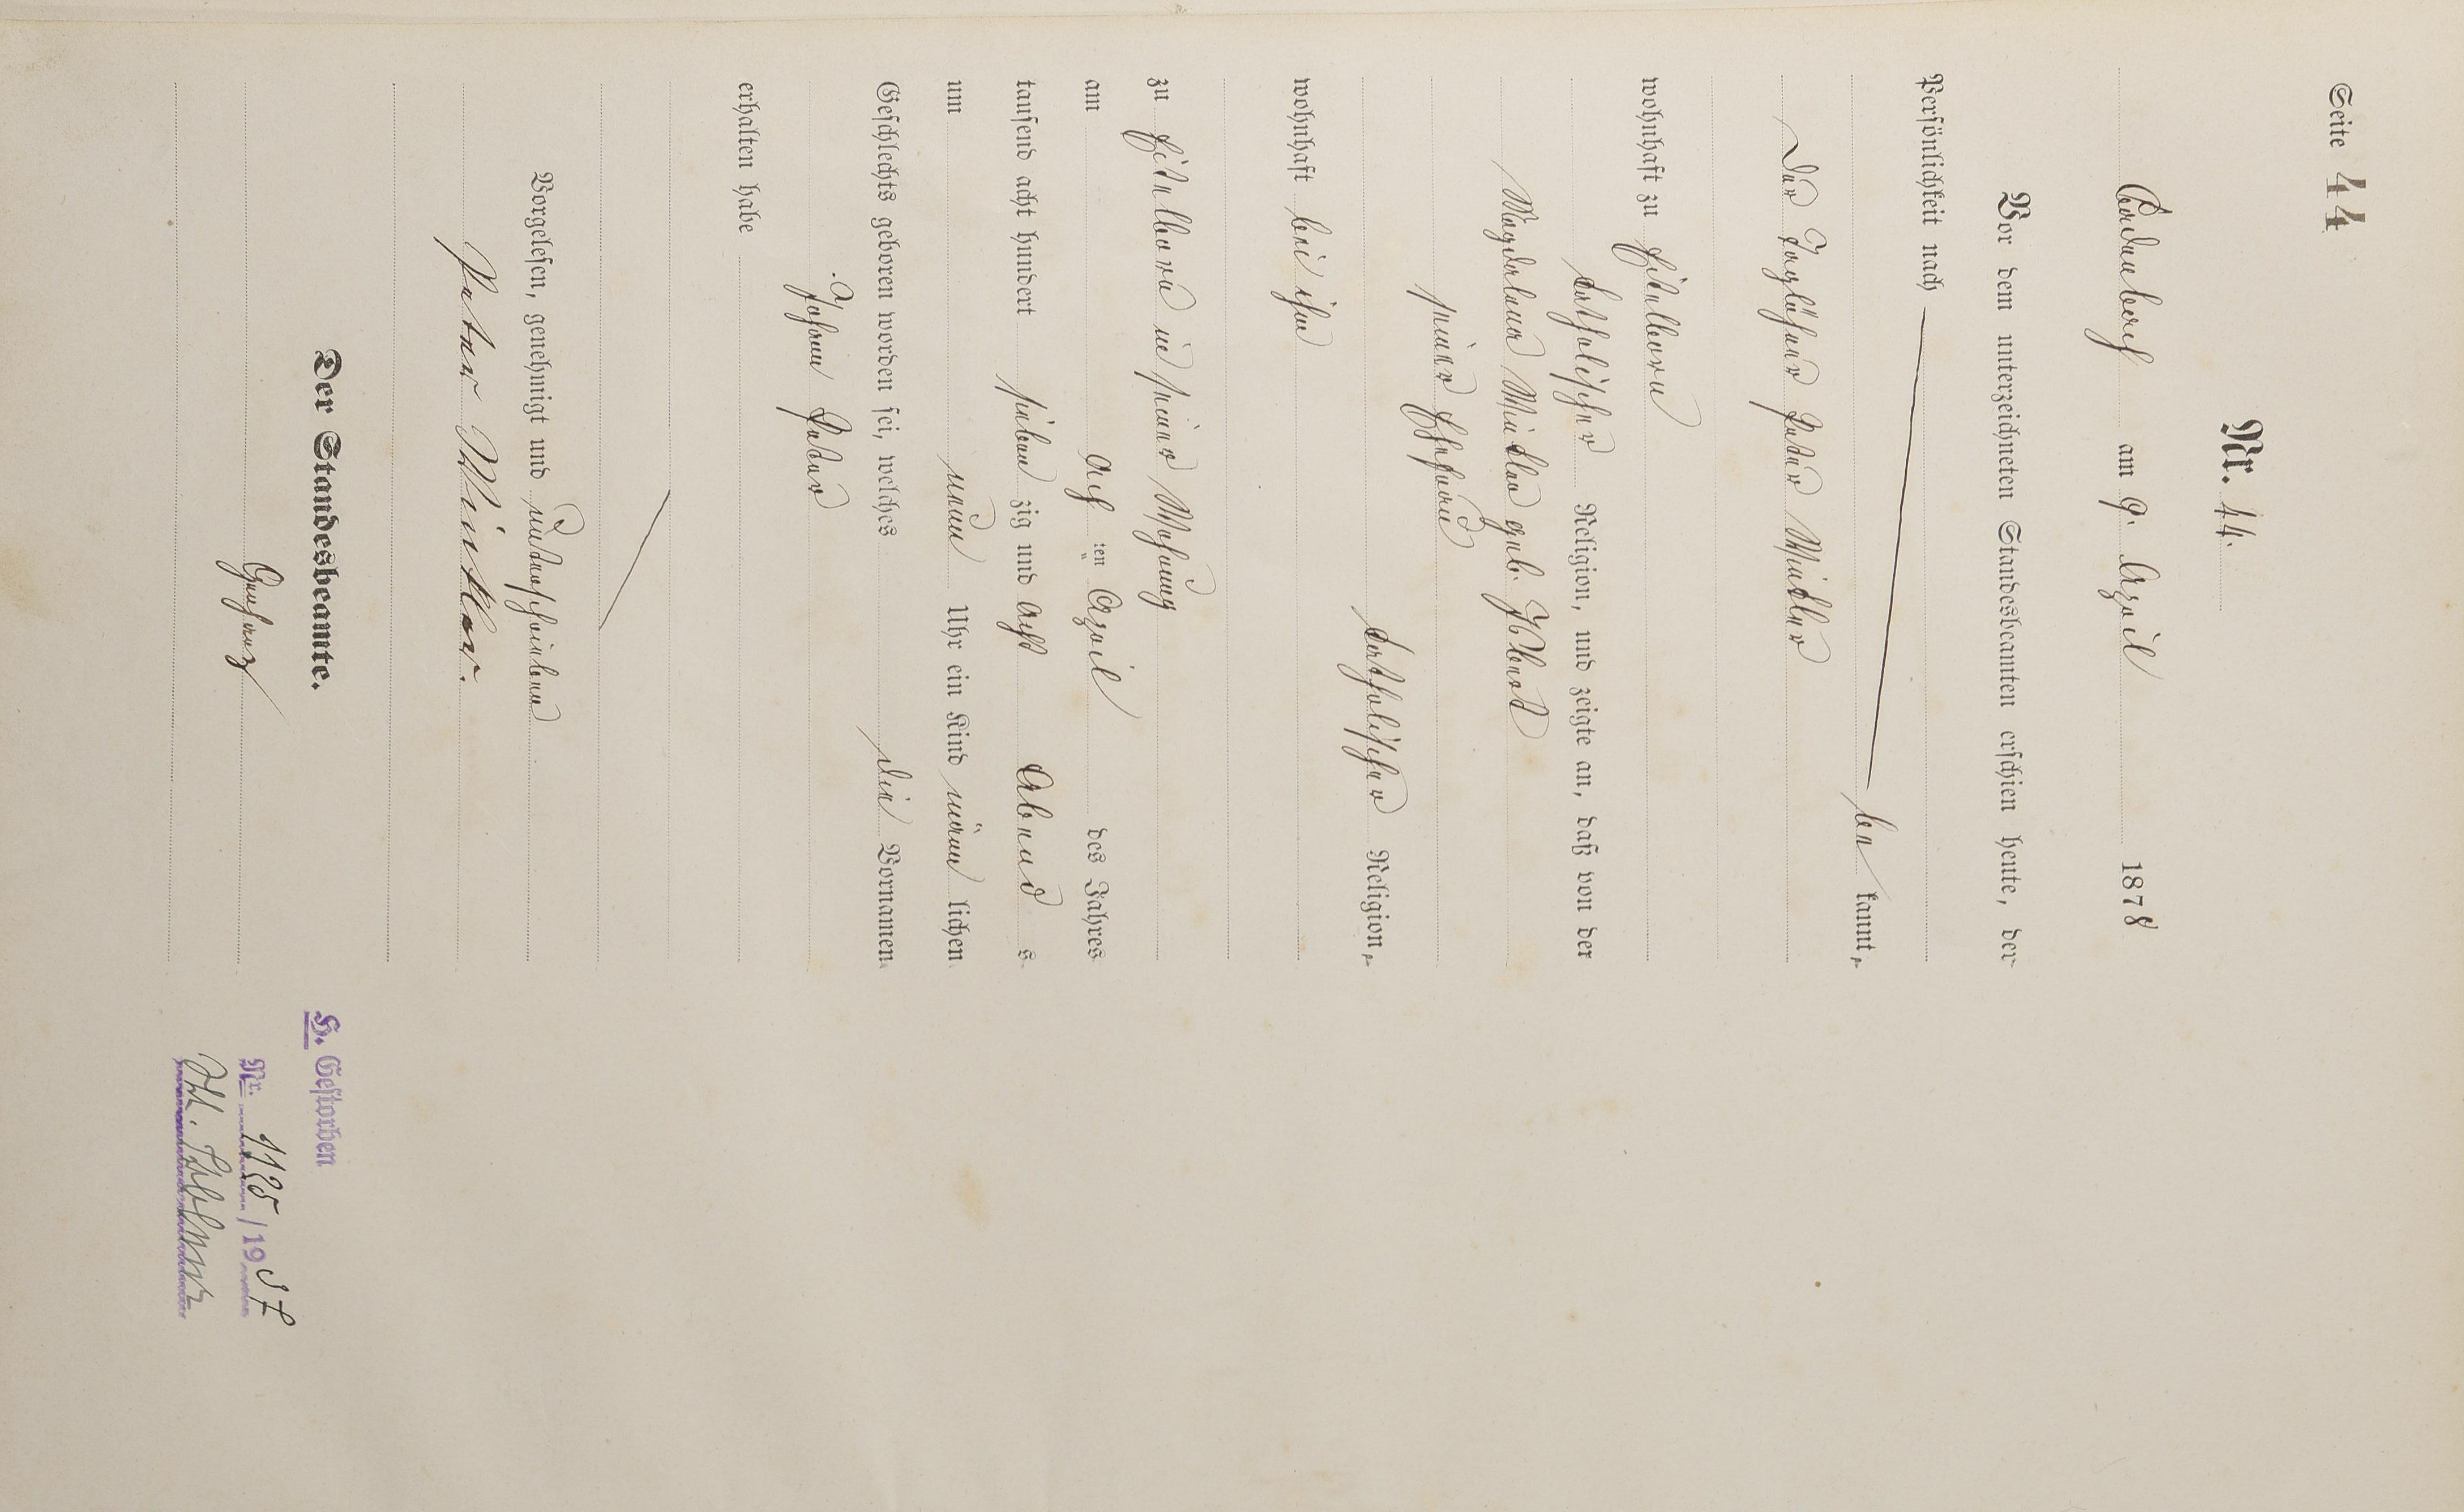 Seite 44
Nr. 44.
am 9. April 1878
Vor dem unterzeichneten Standesbeamten erschien heute, der
Persönlichkeit nach
be kannt,
der Taglöhner Peter Winkler
wohnhaft zu Eitelborn
katholischer Religion, und zeigte an, daß von der
Magdalena Winkler geb. Ebert
seiner Ehefrau
katholischer Religion,
wohnhaft bei ihm
zu Eitelborn in seiner Wohnung
am Acht ten April des Jahres
tausend acht hundert sieben zig und Acht Abend s
um neun Uhr ein Kind männ lichen
Geschlechts geboren worden sei, welches die Vornamen
Johann Peter
erhalten habe
Vorgelesen, genehmigt und unterschrieben
Peter Winkler.
Der Standesbeamte.
H. Gestorben
Nr. 1125/1957